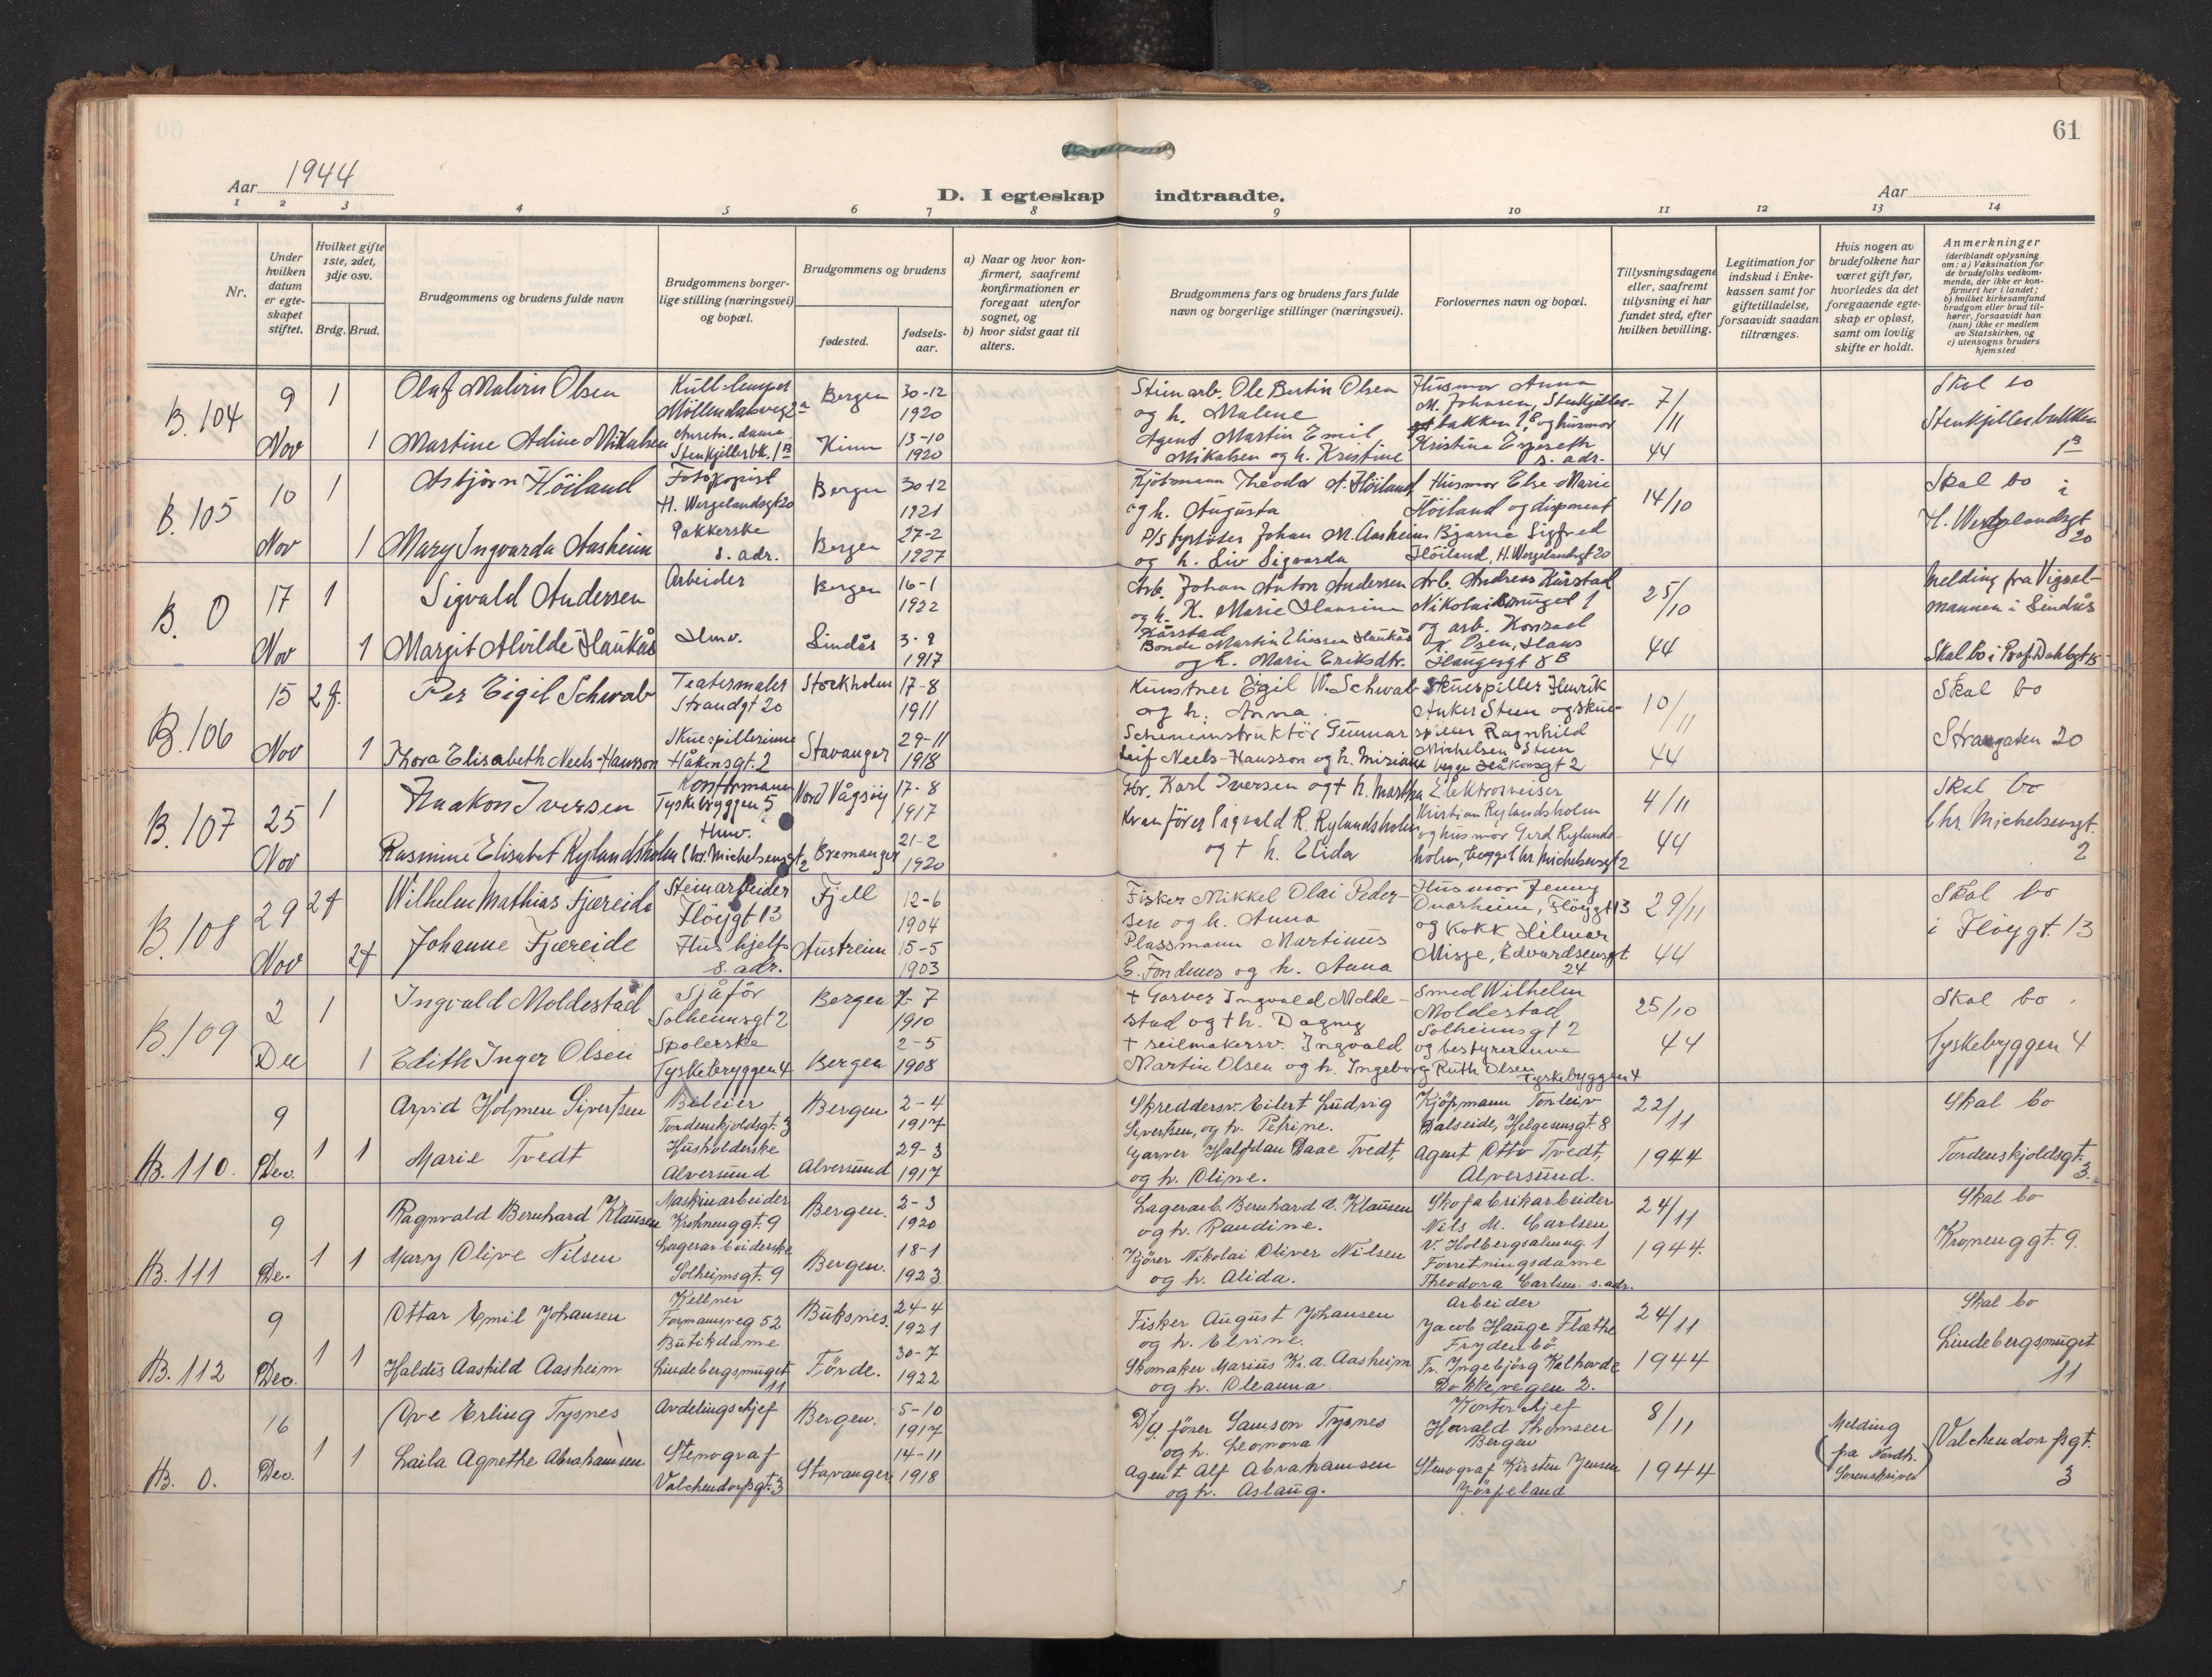 61
Aar 1944
D. I egteskap indtraadte.
Aar
1 2 3 4 5 6 7 8 9 10 11 12 13 14
Nr.
Under hvilken datum er egte-skapet stiftet.
Hvilket gifte 1ste, 2det, 3dje osv.
Brdg. Brud.
Brudgommens og brudens fulde navn
Brudgommens borger-lige stilling (næringsvei) og bopæl.
Brudgommens og brudens
fødested.
fødsels-aar.
a) Naar og hvor kon-firmert, saafremt konfirmationen er foregaat utenfor sognet, og
b) hvor sidst gaat til alters.
Brudgommens fars og brudens fars fulde navn og borgerlige stillinger (næringsvei).
Forlovernes navn og bopæl.
Tillysningsdagene eller, saafremt tillysning ei har fundet sted, efter hvilken bevilling.
Legitimation for indskud i Enke-kassen samt for giftetilladelse, forsaavidt saadan tiltrænges.
Hvis nogen av brudefolkene har været gift før, hvorledes da det foregaaende egte-skap er opløst, samt om lovlig skifte er holdt.
Anmerkninger (deriblandt oplysning om: a) Vaksination for de brudefolks vedkom-mende, der ikke er kon-firmert her i landet; b) hvilket kirkesamfund brudgom eller brud til-hører, forsaavidt han (hun) ikke er medlem av Statskirken, og c) utensogns bruders hjemsted
B. 104
9 Nov
1
Olaf Malvin Olsen
Kull-lemper
Möllendalsveg 2a
Bergen
30-12 1920
Stein arb. Ole Bertin Olsen
og h. Malene
Husmor Anna
M. Johnsen, Stenkjeller-
bakken 1B og husmor
Kristine Espeseth
s. adr.
7/11 44
Skal bo
Stenkjellerbakken
1B
1
Martine Adine Mikalsen
Anretn. dame
Stenkjellerbk. 1B
Kinn
13-10 1920
Agent Martin Emil
Mikalsen og h. Kristine
B. 105
10 Nov
1
Asbjörn Höiland
Fotokopist
H. Wergelandsgt 20
Bergen
30-12 1921
Kjötmann Theodor A. Höiland
og h. Augusta
Husmor Else Marie
Höiland og disponent
Bjarne Sigfred
Höiland, H. Wergelandsgt 20
14/10
Skal bo i
H. Wergelandsgt
20
1
Mary Ingvarda Aasheim
Pakkerske
s. adr.
Bergen
27-2 1927
D/S fyrböter Johan M. Aasheim
og h. Liv Sigvarda
B. 0
17 Nov
1
Sigvald Andersen
Arbeider
Bergen
16-1 1922
Arb. Johan Anton Andersen
og h. K. Marie Hansine
Kårstad
Arb. Andreas Kårstad
Nikolaismuget 1
og arb. Konrad
Osen, Hans
Haugesgt 8B
25/10 44
Melding fra Vigsel-
mannen i Lindås
Skal bo i Prof. Dahlsgt 15
1
Margit Alvilde Haukås
Hmv.
Lindås
3-9 1917
Bonde Martin Eliassen Haukås
og h. Marie Eriksdtr.
B. 106
15 Nov
2 f.
Per Eigil Schwab
Teatermaler
Strandgt 20
Stockholm
17-8 1911
Kunstner Eigil W. Schwab
og h. Anna
Skuespiller Henrik
Anker Steen og skue-
spiller Ragnhild
Michelsen Steen
begge Håkonsgt 2
10/11 44
Skal bo
Strangaten 20
1
Thora Elisabeth Neels-Hansson
Skuespillerinne
Håkonsgt. 2
Stavanger
29-11 1918
Sceneinstruktör Gunnar
Leif Neels-Hansson og h. Miriam
B. 107
25 Nov
1
Haakon Iversen
Kontormann
Tyskebryggen 5
Nord Vågsöy
17-8 1917
Gbr. Karl Iversen og + h. Martha
Elektrosveiser
Kristian Rylandsholm
og husmor Gerd Rylands-
holm, begge Chr. Michelsensgt 2
4/11 44
Skal bo
Chr. Michelsensgt.
2
Rasmine Elisabet Rylandsholm
Hmv.
Chr. Michelsensgt 2
Bremanger
21-2 1920
Kranförer Sigvald R. Rylandsholm
og + h. Elida
B. 108
29 Nov
2 f
Wilhelm Mathias Fjæreide
Steinarbeider
Flöygt 13
Fjell
12-6 1904
Fisker Mikkel Olai Peder-
sen og h. Anna
Husmor Jenny
Onarheim, Flöygt 13
og kokk Hilmar
Misje, Edvardsensgt
24
29/11 44
Skal bo
i Flöygt. 13
2 f
Johanne Fjæreide
Hushjelp
s. adr.
Austreim
15-5 1903
Plassmann Martinus
E. Fondenes og h. Anna
B. 109
2 Des
1
Ingvald Moldestad
Sjåför
Solheimsgt 2
Bergen
7 1910
+ Garver Ingvald Molde-
stad og + h. Dagny
Smed Wilhelm
Moldestad
Solheimsgt 2
og bestyrerinne
Ruth Olsen
Tyskebyggen 4
25/10 44
Skal bo
Tyskebyggen 4
1
Edith Inger Olsen
Spolerske
Tyskebryggen 4
Bergen
2-5 1908
+ seilmakersv. Ingvald
Martin Olsen og h. Ingeborg
B. 110.
9 Des.
1 1
Arvid Holmen Sivertsen
Bileier
Tordenskjoldsgt. 3
Bergen
2-4 1917
Skreddersv. Eilert Ludvig
Sivertsen, og h. Petrine.
Kjöpmann Torleiv
Dalseide, Helgesensgt. 8
Agent Otto Tvedt,
Alversund.
22/11 1944
Skal bo
Tordenskjoldsgt.
3
Marie Tvedt
Husholderske
Alversund
Alversund
29-3 1917
Garver Halfdan Daae Tvedt,
og h. Oline.
B. 111
9 De.
1 1
Ragnvald Bernhard Klausen
Maskinarbeider
Krohnenggt. 9
Bergen.
2-3 1920
Lagerarb. Bernhard A. Klausen
og h. Randine.
Skofabrikarbeider
Nils M. Carlsen
V. Holbergsalmng. 1
Forretningsdame
Theodora Carlsen. s. adr.
24/11 1944.
Skal bo
Kronenggt. 9.
Mary Olive Nilsen
Lagerarbeiderske
Solheimsgt. 9
Bergen.
18-1 1923
Kjörer Nikolai Oliver Nilsen
og h. Alida.
B. 112
9 Des.
1 1
Ottar Emil Johansen
Kellner
Formannsveg 52
Buksnes.
24-4 1921
Fisker August Johansen
og h. Elvine.
Arbeider
Jacob Hauge Flæthe
Frydenbö
Fr. Ingebjörg Kalhovde
Dokkevegen 2.
24/11 1944
Skal bo
Lindebergsmuget
11
Haldis Aashild Aasheim
Butikdame
Lindebergsmuget
11
Förde.
30-7 1922
Skomaker Marius Kr. A. Aasheim
og h. Oleanna.
B. 0.
16 Des.
1 1
Ove Erling Tysnes
Avdelingschef
Bergen.
5-10 1917
D/g. förer Samson Tysnes
og h. Leonora
Kontorchef
Harald Thomsen
Bergen
Stenograf Kirsten Jensen
Jörpeland
8/11 1944
Melding
fra Nordh.
Sorenskriveri
Valchendorfsgt.
3
Laila Agnethe Abrahamsen
Stenograf
Valchendorfsgt. 3
Stavanger
14-11 1918
Agent Alf Abrahamsen
og h. Aslaug.